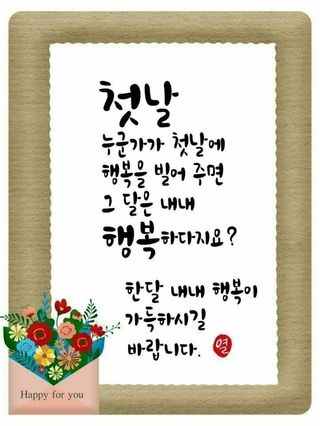 첫날
누군가가 첫날에
행복을 빌어 주면
그 달은 내내
행복하다지요?
한달 내내 행복이
가득하시길
바랍니다.
열
Happy for you